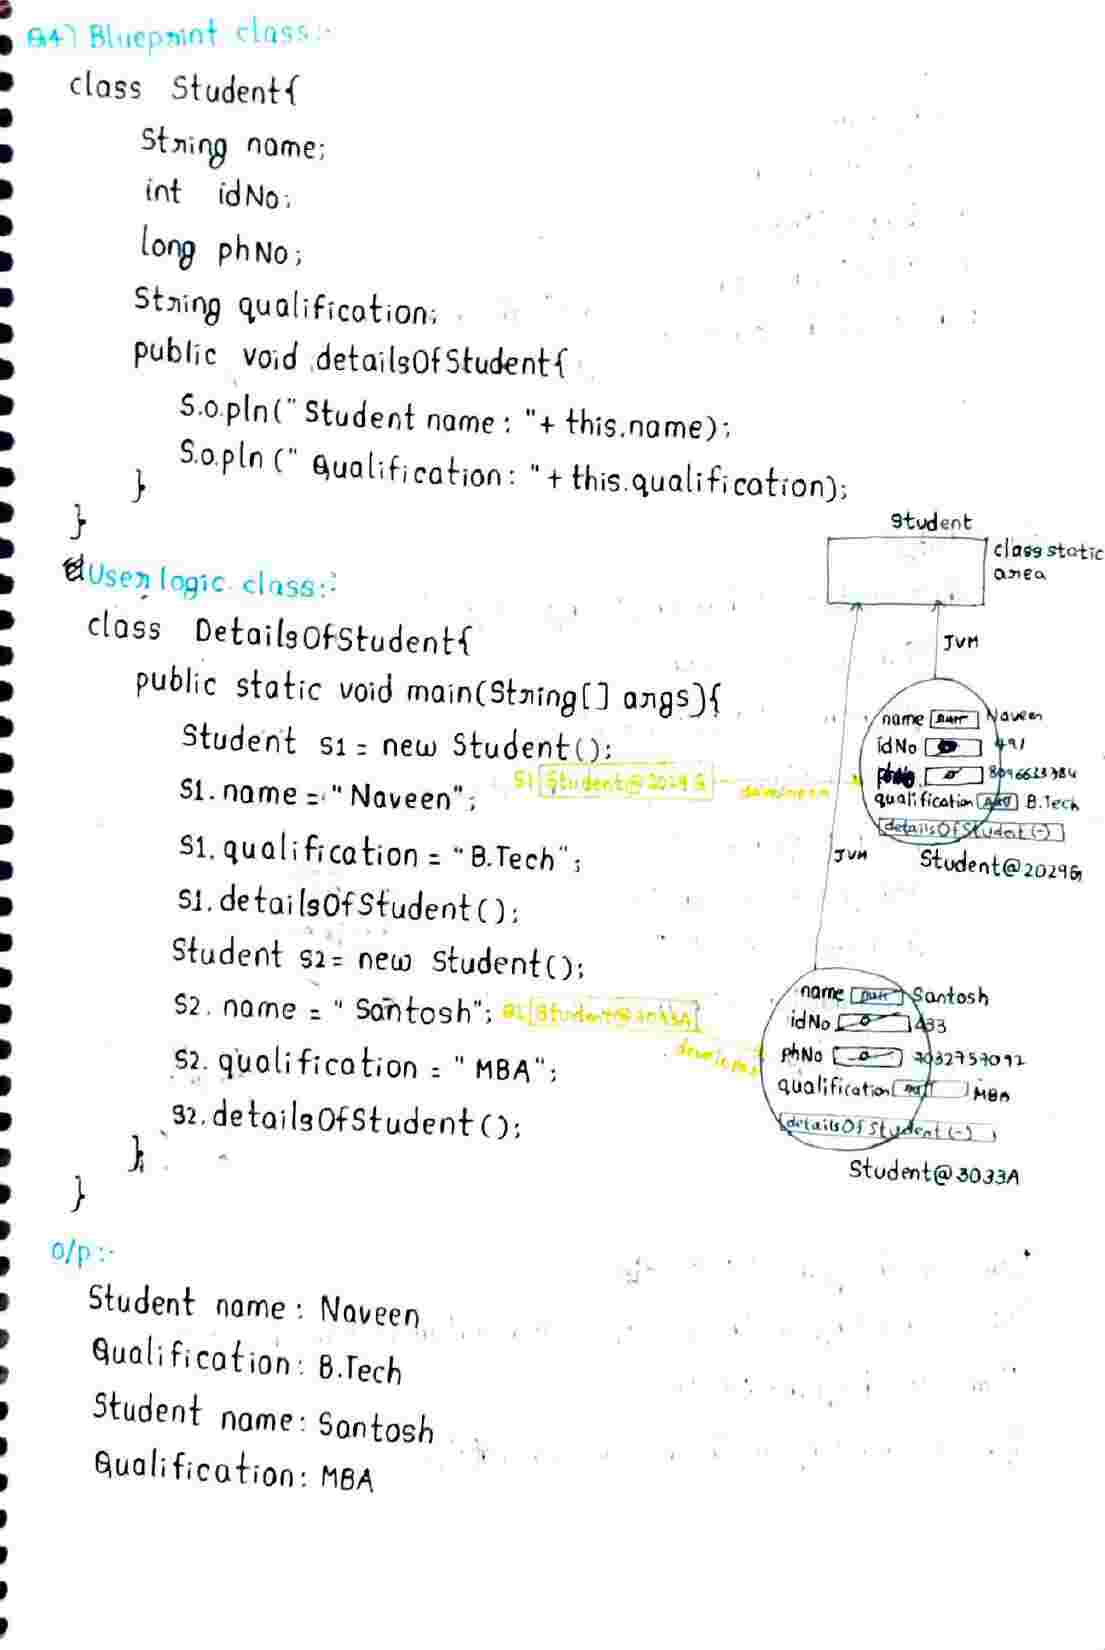 Q4) Blueprint class:-
class Student{
String name;
int idNo;
long phNo;
String qualification;
public void detailsOfStudent{
S.o.pln("Student name: "+ this.name);
S.o.pln (" Qualification: "+ this.qualification);
}
}
User logic class:-
class DetailsOfStudent{
public static void main(String[] args){
Student s1 = new Student();
S1.name = "Naveen";
S1.qualification = "B.Tech";
S1.detailsOfStudent();
Student s2 = new Student();
S2. name = "Santosh";
S2. qualification = "MBA";
S2.detailsOfStudent();
}
}
Student
class static
area
JVM
JVM
S1 Student@2029G
name Naveen
idNo 491
qualification B.Tech
detailsOfStudent(-)
Student@2029G
Student@3033A
developer
name null Santosh
idNo 0 433
phNo 0 7032757092
qualification null MBA
detailsOfStudent(-)
Student@3033A
O/p:-
Student name: Naveen
Qualification: B.Tech
Student name: Santosh
Qualification: MBA